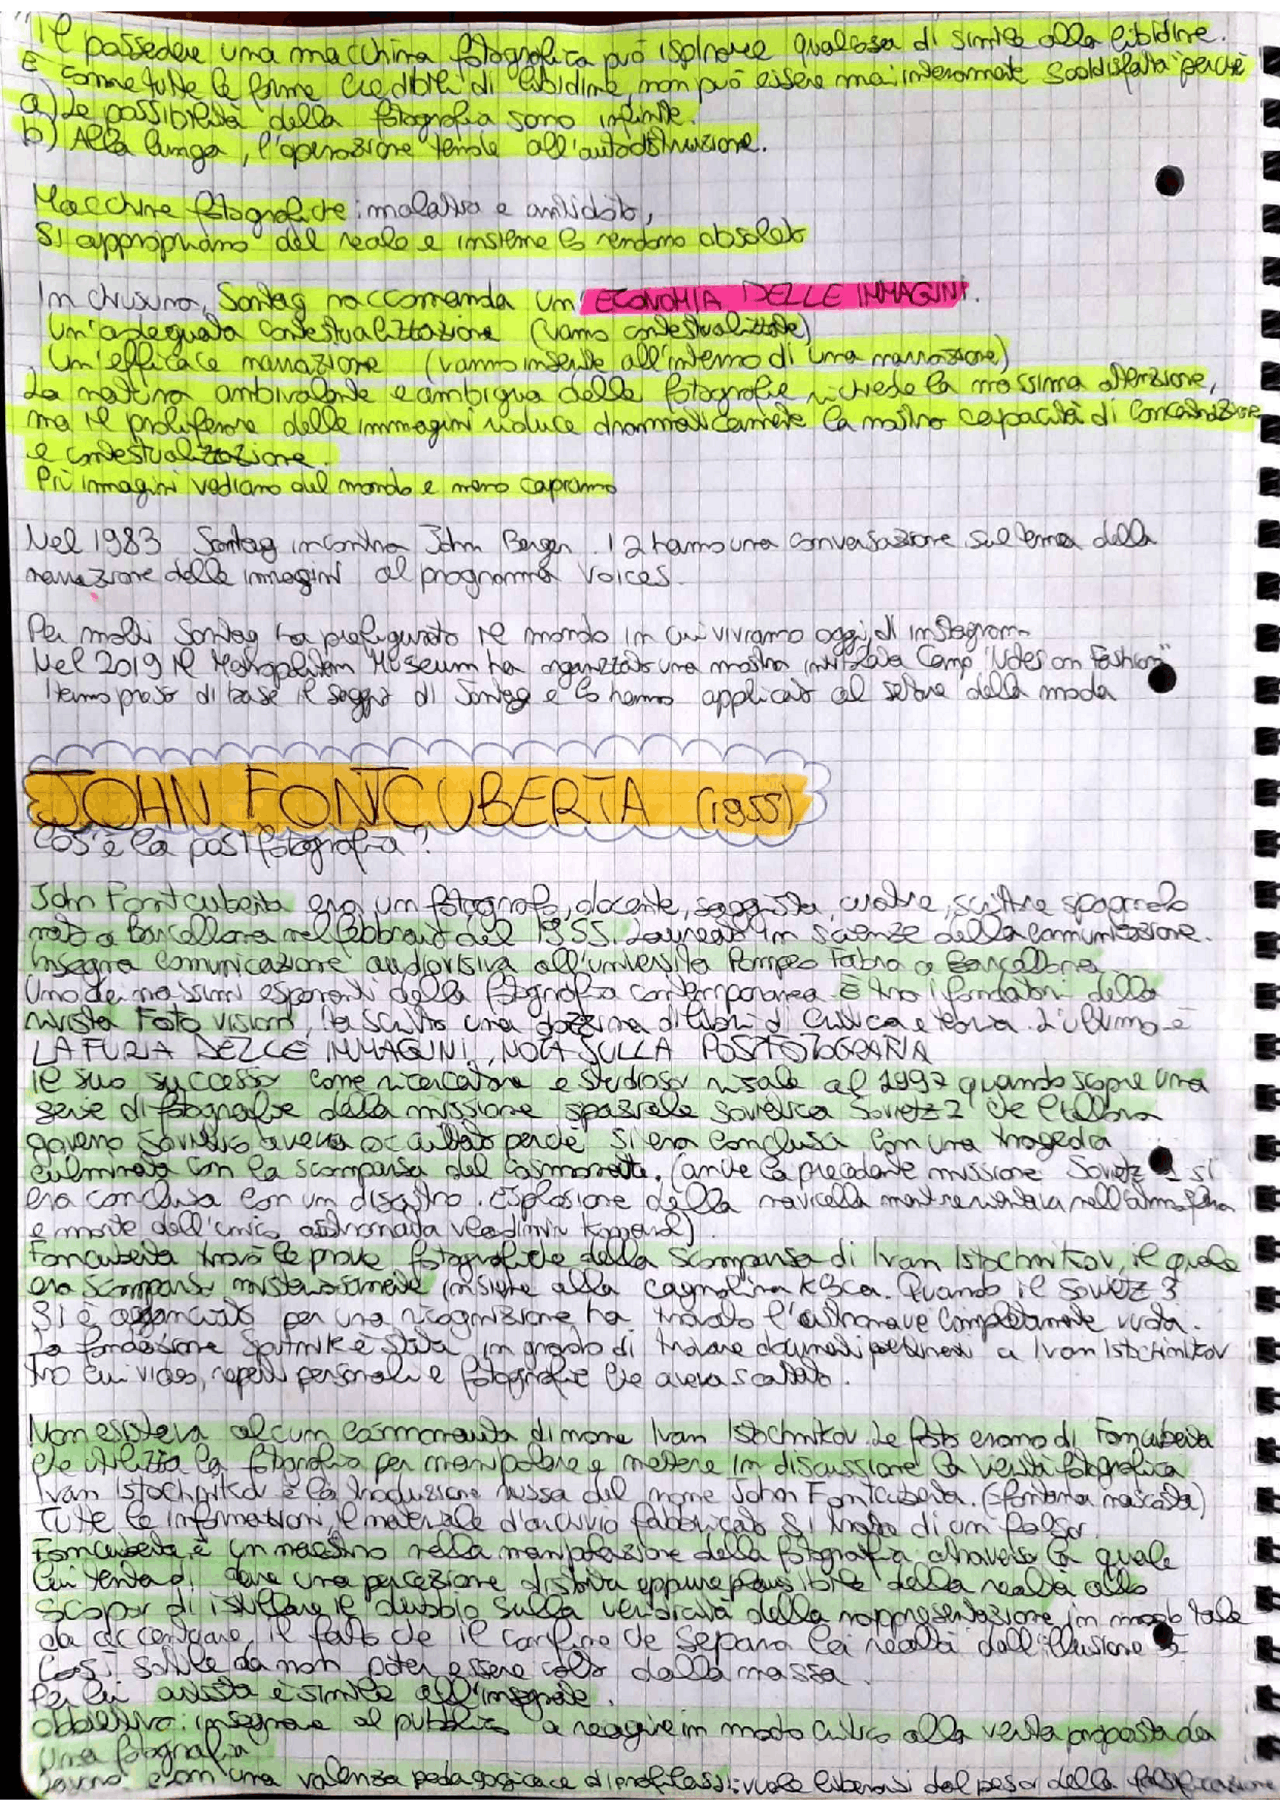 "Il possedere una macchina fotografica può ispirare qualcosa di simile alla libidine.
E come tutte le forme credibili di libidine non può essere mai interamente soddisfatta perchè
a) Le possibilità della fotografia sono infinite.
b) Alla lunga, l'operazione tende all'autodistruzione.
Macchine fotografiche: malattia e antidoto,
Si appropriano del reale e insieme lo rendono obsoleto
In chiusura, Sontag raccomanda un' ECONOMIA DELLE IMMAGINI.
Un'adeguata contestualizzazione (vanno contestualizzate)
Un'efficace narrazione (vanno inserite all'interno di una narrazione)
La natura ambivalente e ambigua delle fotografie richiede la massima attenzione,
ma il proliferare delle immagini riduce drammaticamente la nostra capacità di concentrazione
e contestualizzazione.
Più immagini vediamo del mondo e meno capiamo
Nel 1983 Sontag incontra John Berger. I 2 hanno una conversazione sul tema della
narrazione delle immagini al programma Voices.
Per molti Sontag ha prefigurato il mondo in cui viviamo oggi, di instagram.
Nel 2019 il Metropolitan Museum ha organizzato una mostra intitolata Camp "Notes on Fashion"
Hanno preso di base il saggio di Sontag e lo hanno applicato al settore della moda
JOHN FONTCUBERTA (1955)
Cos'è la postfotografia?
John Fontcuberta era un fotografo, docente, saggista, critico, scrittore spagnolo
nato a Barcellona nel febbraio del 1955. Laureato in scienze della comunicazione.
Insegna comunicazione audiovisiva all'università Pompeo Fabra a Barcellona
Uno dei massimi esponenti della fotografia contemporanea. È tra i fondatori della
rivista Foto vision, ha scritto una dozzina di libri di critica e teoria. L'ultimo è
LA FURIA DELLE IMMAGINI, NOTA SULLA POSTFOTOGRAFIA
Il suo successo come ricercatore e studioso risale al 1997 quando scopre una
serie di fotografie della missione spaziale sovietica Sovietz 2 che l'allora
governo sovietico aveva occultato perchè si era conclusa con una tragedia
culminata con la scomparsa del cosmonauta. (anche la precedente missione Sovietz 1 si
era conclusa con un disastro. Esplosione della navicella mentre rientrava nell'atmosfera
e morte dell'unico astronauta Vladimir)
Foncuberta trovò le prove fotografiche della scomparsa di Ivan Istochnikov, il quale
era scomparso misteriosamente insieme alla cagnolina Kloca. Quando il Souetz 3
si è agganciato per una ricognizione ha trovato l'astronave completamente vuota.
La fondazione Sputnik è stata in grado di trovare documenti pertinenti a Ivan Istochnikov
tra cui video, reperti personali e fotografie che aveva scattato.
Non esisteva alcun cosmonauta di nome Ivan Istochnikov. Le foto erano di Foncuberta
che utilizza la fotografia per manipolare e mettere in discussione la verità fotografica
Ivan Istochnikov è la traduzione russa del nome John Fontcuberta. (= fontana nascosta)
Tutte le informazioni, il materiale d'archivio fabbricato si tratta di un falso.
Foncuberta è un maestro nella manipolazione della fotografia attraverso la quale
lui tenta di dare una percezione distorta eppure plausibile della realtà allo
scopo di istillare il dubbio sulla veridicità della rappresentazione in modo tale
da accentuare il fatto che il confine che separa la realtà dall'illusione è
così sottile da non poter essere colto dalla massa.
Per lui artista è simile all'insegnante.
Obbiettivo: insegnare al pubblico a reagire in modo critico alla verità proposta da
una fotografia
Lavoro: con una valenza pedagogica e di profilassi: vuole liberarsi dal peso della falsificazione